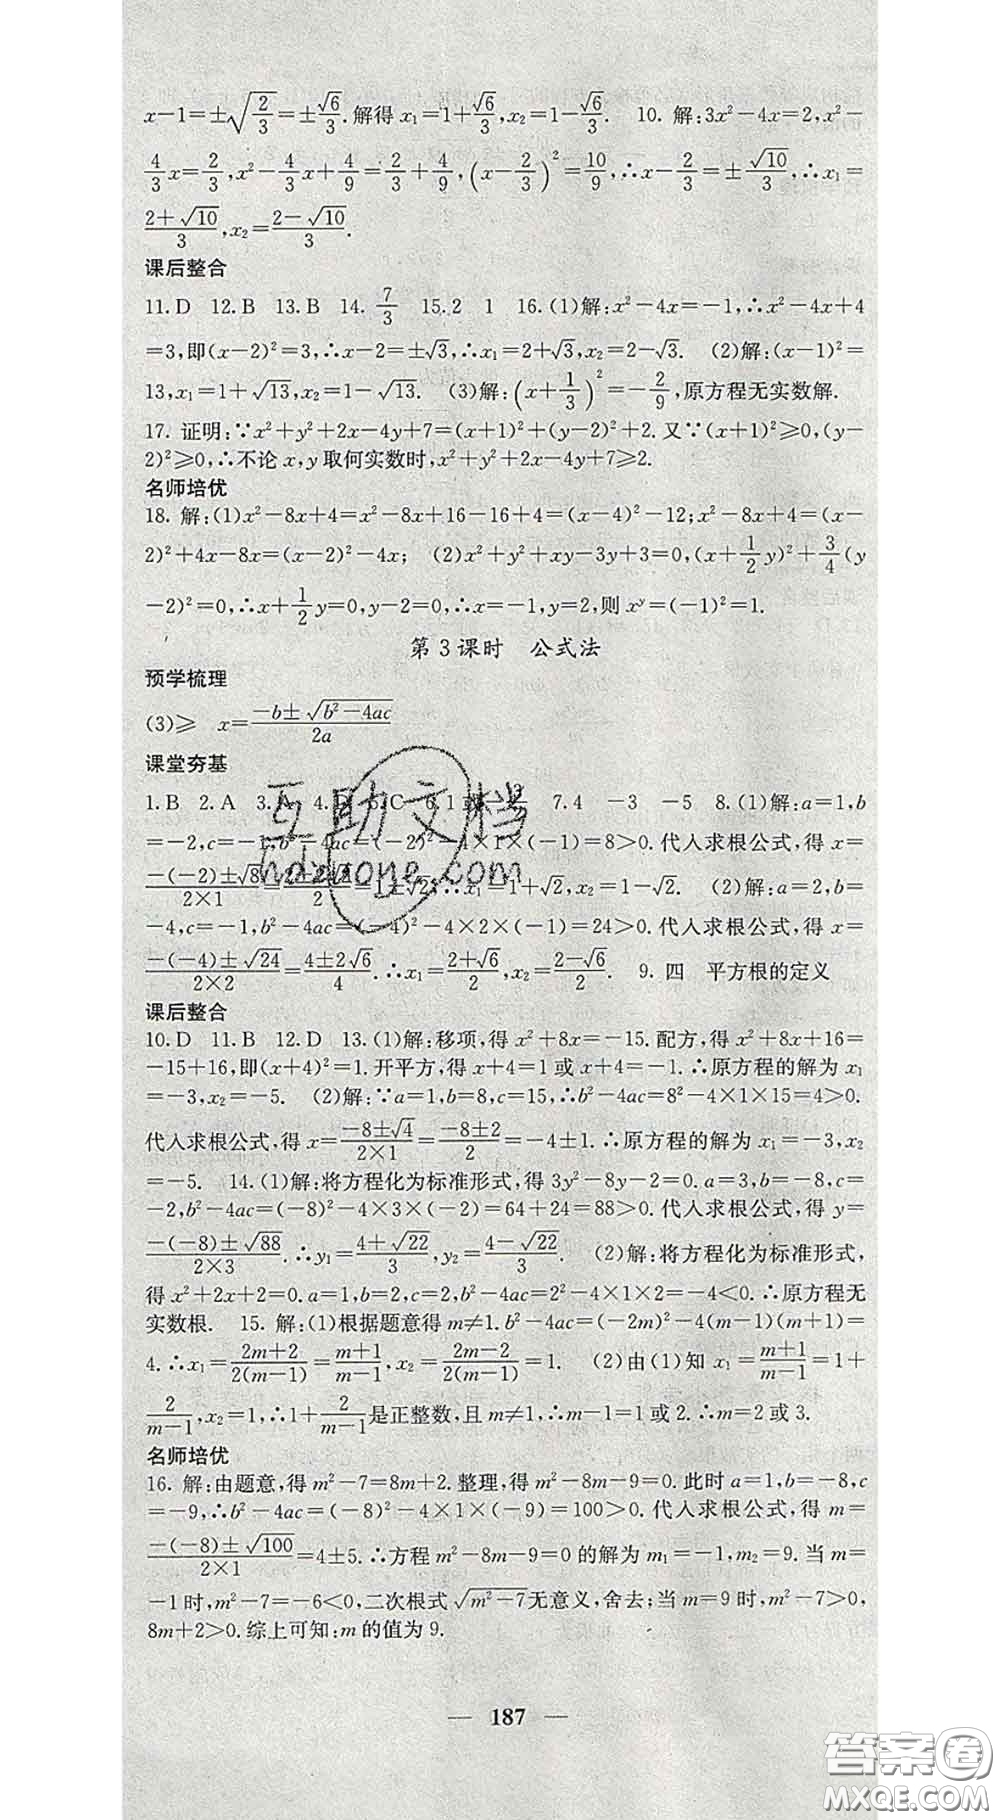 x－1＝±√(2/3)＝±√6/3.解得x₁＝1＋√6/3,x₂＝1－√6/3.　10. 解:3x²－4x＝2,x²－
4/3x＝2/3,x²－4/3x＋4/9＝2/3＋4/9,(x－2/3)²＝10/9,∴x－2/3＝±√10/3,∴x₁＝
(2＋√10)/3,x₂＝(2－√10)/3.
课后整合
11.D　12.B　13.B　14.7/3　15.2　1　16.(1)解:x²－4x＝－1,∴x²－4x＋4
＝3,即(x－2)²＝3,∴x－2＝±√3,∴x₁＝2＋√3,x₂＝2－√3.　(2)解:(x－1)²＝
13,x₁＝1＋√13,x₂＝1－√13.　(3)解:(x＋1/3)²＝－2/9,原方程无实数解.
17. 证明:∵x²＋y²＋2x－4y＋7＝(x＋1)²＋(y－2)²＋2.又∵(x＋1)²≥0,(y－
2)²≥0,∴不论x,y取何实数时,x²＋y²＋2x－4y＋7≥2.
名师培优
18. 解:(1)x²－8x＋4＝x²－8x＋16－16＋4＝(x－4)²－12;x²－8x＋4＝(x－
2)²＋4x－8x＝(x－2)²－4x;　(2)x²＋y²＋xy－3y＋3＝0,(x＋1/2y)²＋3/4(y
－2)²＝0,∴x＋1/2y＝0,y－2＝0,∴x＝－1,y＝2,则xʸ＝(－1)²＝1.
第3课时　公式法
预学梳理
(3)≥　x＝(－b±√(b²－4ac))/2a
课堂夯基
1.B　2.A　3.A　4.D　5.C　6.1或　7.4　－3　－5　8.(1)解:a＝1,b
＝－2,c＝－1,b²－4ac＝(－2)²－4×1×(－1)＝8>0.代入求根公式,得x＝
(－(－2)±√8)/(2×1)＝＝1±√2,∴x₁＝1＋√2,x₂＝1－√2.　(2)解:a＝2,b＝
－4,c＝－1,b²－4ac＝(－4)²－4×2×(－1)＝24>0.代入求根公式,得x＝
(－(－4)±√24)/(2×2)＝(4±2√6)/4.∴x₁＝(2＋√6)/2,x₂＝(2－√6)/2.　9. 四　平方根的定义
课后整合
10.D　11.B　12.D　13.(1)解:移项,得x²＋8x＝－15.配方,得x²＋8x＋16＝
－15＋16,即(x＋4)²＝1.开平方,得x＋4＝1或x＋4＝－1.∴原方程的解为x₁
＝－3,x₂＝－5.　(2)解:∵a＝1,b＝8,c＝15,∴b²－4ac＝8²－4×1×15＝4>0.
代入求根公式,得x＝(－8±√4)/(2×1)＝(－8±2)/2＝－4±1.∴原方程的解为x₁＝－3,x₂
＝－5.　14.(1)解:将方程化为标准形式,得3y²－8y－2＝0.a＝3,b＝－8,c＝
－2,b²－4ac＝(－8)²－4×3×(－2)＝64＋24＝88>0.代入求根公式,得y＝
(－(－8)±√88)/(2×3).∴y₁＝(4＋√22)/3,y₂＝(4－√22)/3.　(2)解:将方程化为标准形式,
得x²＋2x＋2＝0.a＝1,b＝2,c＝2,b²－4ac＝2²－4×1×2＝－4<0.∴原方程无
实数根.　15. 解:(1)根据题意得m≠1.b²－4ac＝(－2m)²－4(m－1)(m＋1)＝
4.∴x₁＝(2m＋2)/(2(m－1))＝(m＋1)/(m－1),x₂＝(2m－2)/(2(m－1))＝1.　(2)由(1)知x₁＝(m＋1)/(m－1)＝1＋
2/(m－1),x₂＝1,∴1＋2/(m－1)是正整数,且m≠1,∴m－1＝1或2.∴m＝2或3.
名师培优
16. 解:由题意,得m²－7＝8m＋2.整理,得m²－8m－9＝0.此时a＝1,b＝－8,c
＝－9,∴b²－4ac＝(－8)²－4×1×(－9)＝100>0.代入求根公式,得m＝
(－(－8)±√100)/(2×1)＝4±5.∴方程m²－8m－9＝0的解为m₁＝－1,m₂＝9.当m＝
－1时,m²－7＝－6<0,二次根式√(m²－7)无意义,舍去;当m＝9时,m²－7>0,
8m＋2>0.综上可知:m的值为9.
— 187 —
互助文档
hdzuone.com
答案圈
MXQE.COM